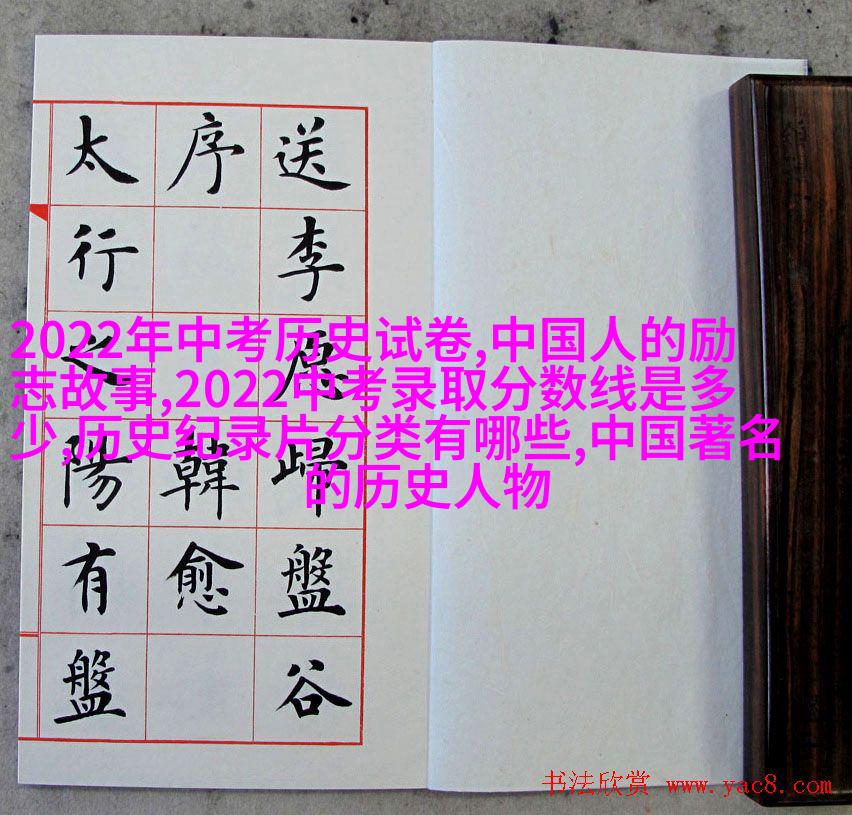 送李愿歸盤谷
序 韓愈
太行之陽有盤
2022年中考历史试卷,中国人的励
志故事,2022中考录取分数线是多
少,历史纪录片分类有哪些,中国著名
的历史人物
书法欣赏 www.yac8.com